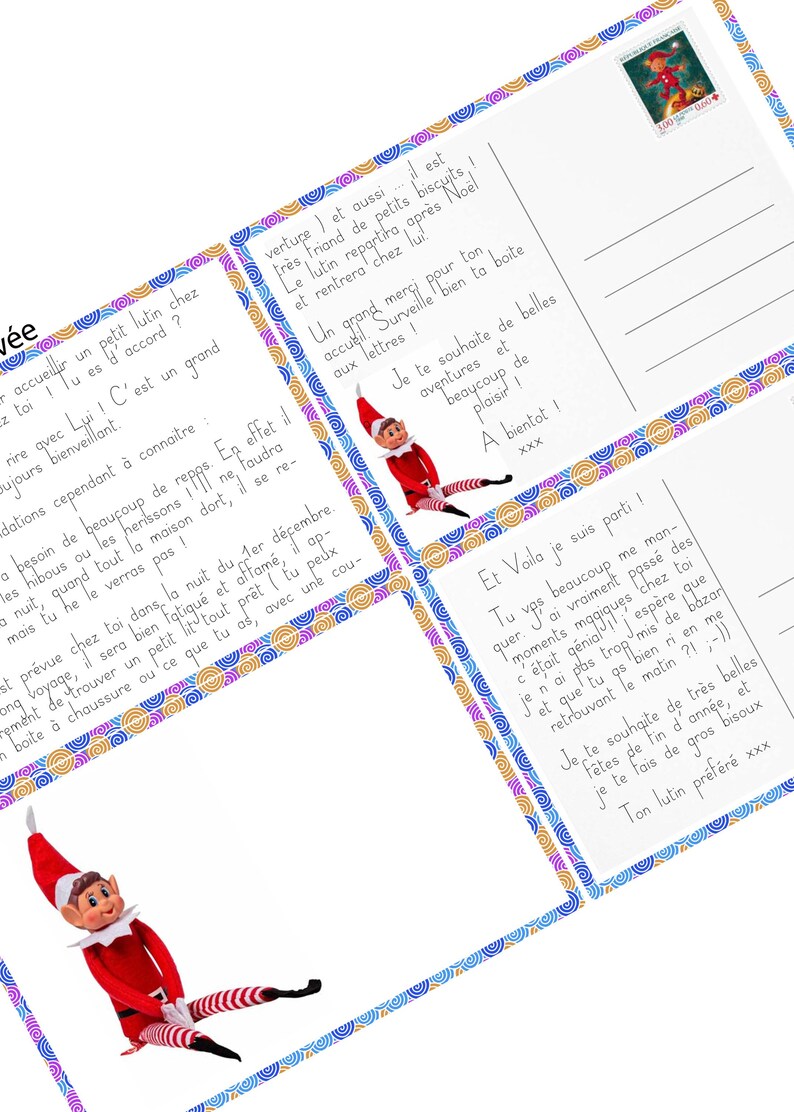 vée
r accueillir un petit lutin chez
ez toi ! Tu es d'accord ?
rire avec Lui ! C'est un grand
oujours bienveillant.
dations cependant à connaitre :
a besoin de beaucoup de repos. En effet il
les hibous ou les herissons ! Il ne faudra
a nuit, quand tout la maison dort, il se re-
mais tu ne le verras pas !
est prévue chez toi dans la nuit du 1er décembre.
ong voyage, il sera bien fatigué et affamé, il ap-
rement de trouver un petit lit tout prêt ( tu peux
n boite à chaussure ou ce que tu as, avec une cou-
verture ) et aussi ... il est
très friand de petits biscuits !
Le lutin repartira après Noël
et rentrera chez lui!
Un grand merci pour ton
accueil! Surveille bien ta boite
aux lettres !
Je te souhaite de belles
aventures et
beaucoup de
plaisir !
A bientot !
xxx
RÉPUBLIQUE FRANÇAISE
3,00 LA POSTE 0,60
Et Voila je suis parti !
Tu vas beaucoup me man-
quer. J'ai vraiment passé des
moments magiques chez toi
c'était génial ! J'espère que
je n'ai pas trop mis de bazar
et que tu as bien ri en me
retrouvant le matin ?! ;-))
Je te souhaite de très belles
fêtes de fin d'année, et
je te fais de gros bisoux
Ton lutin préféré xxx